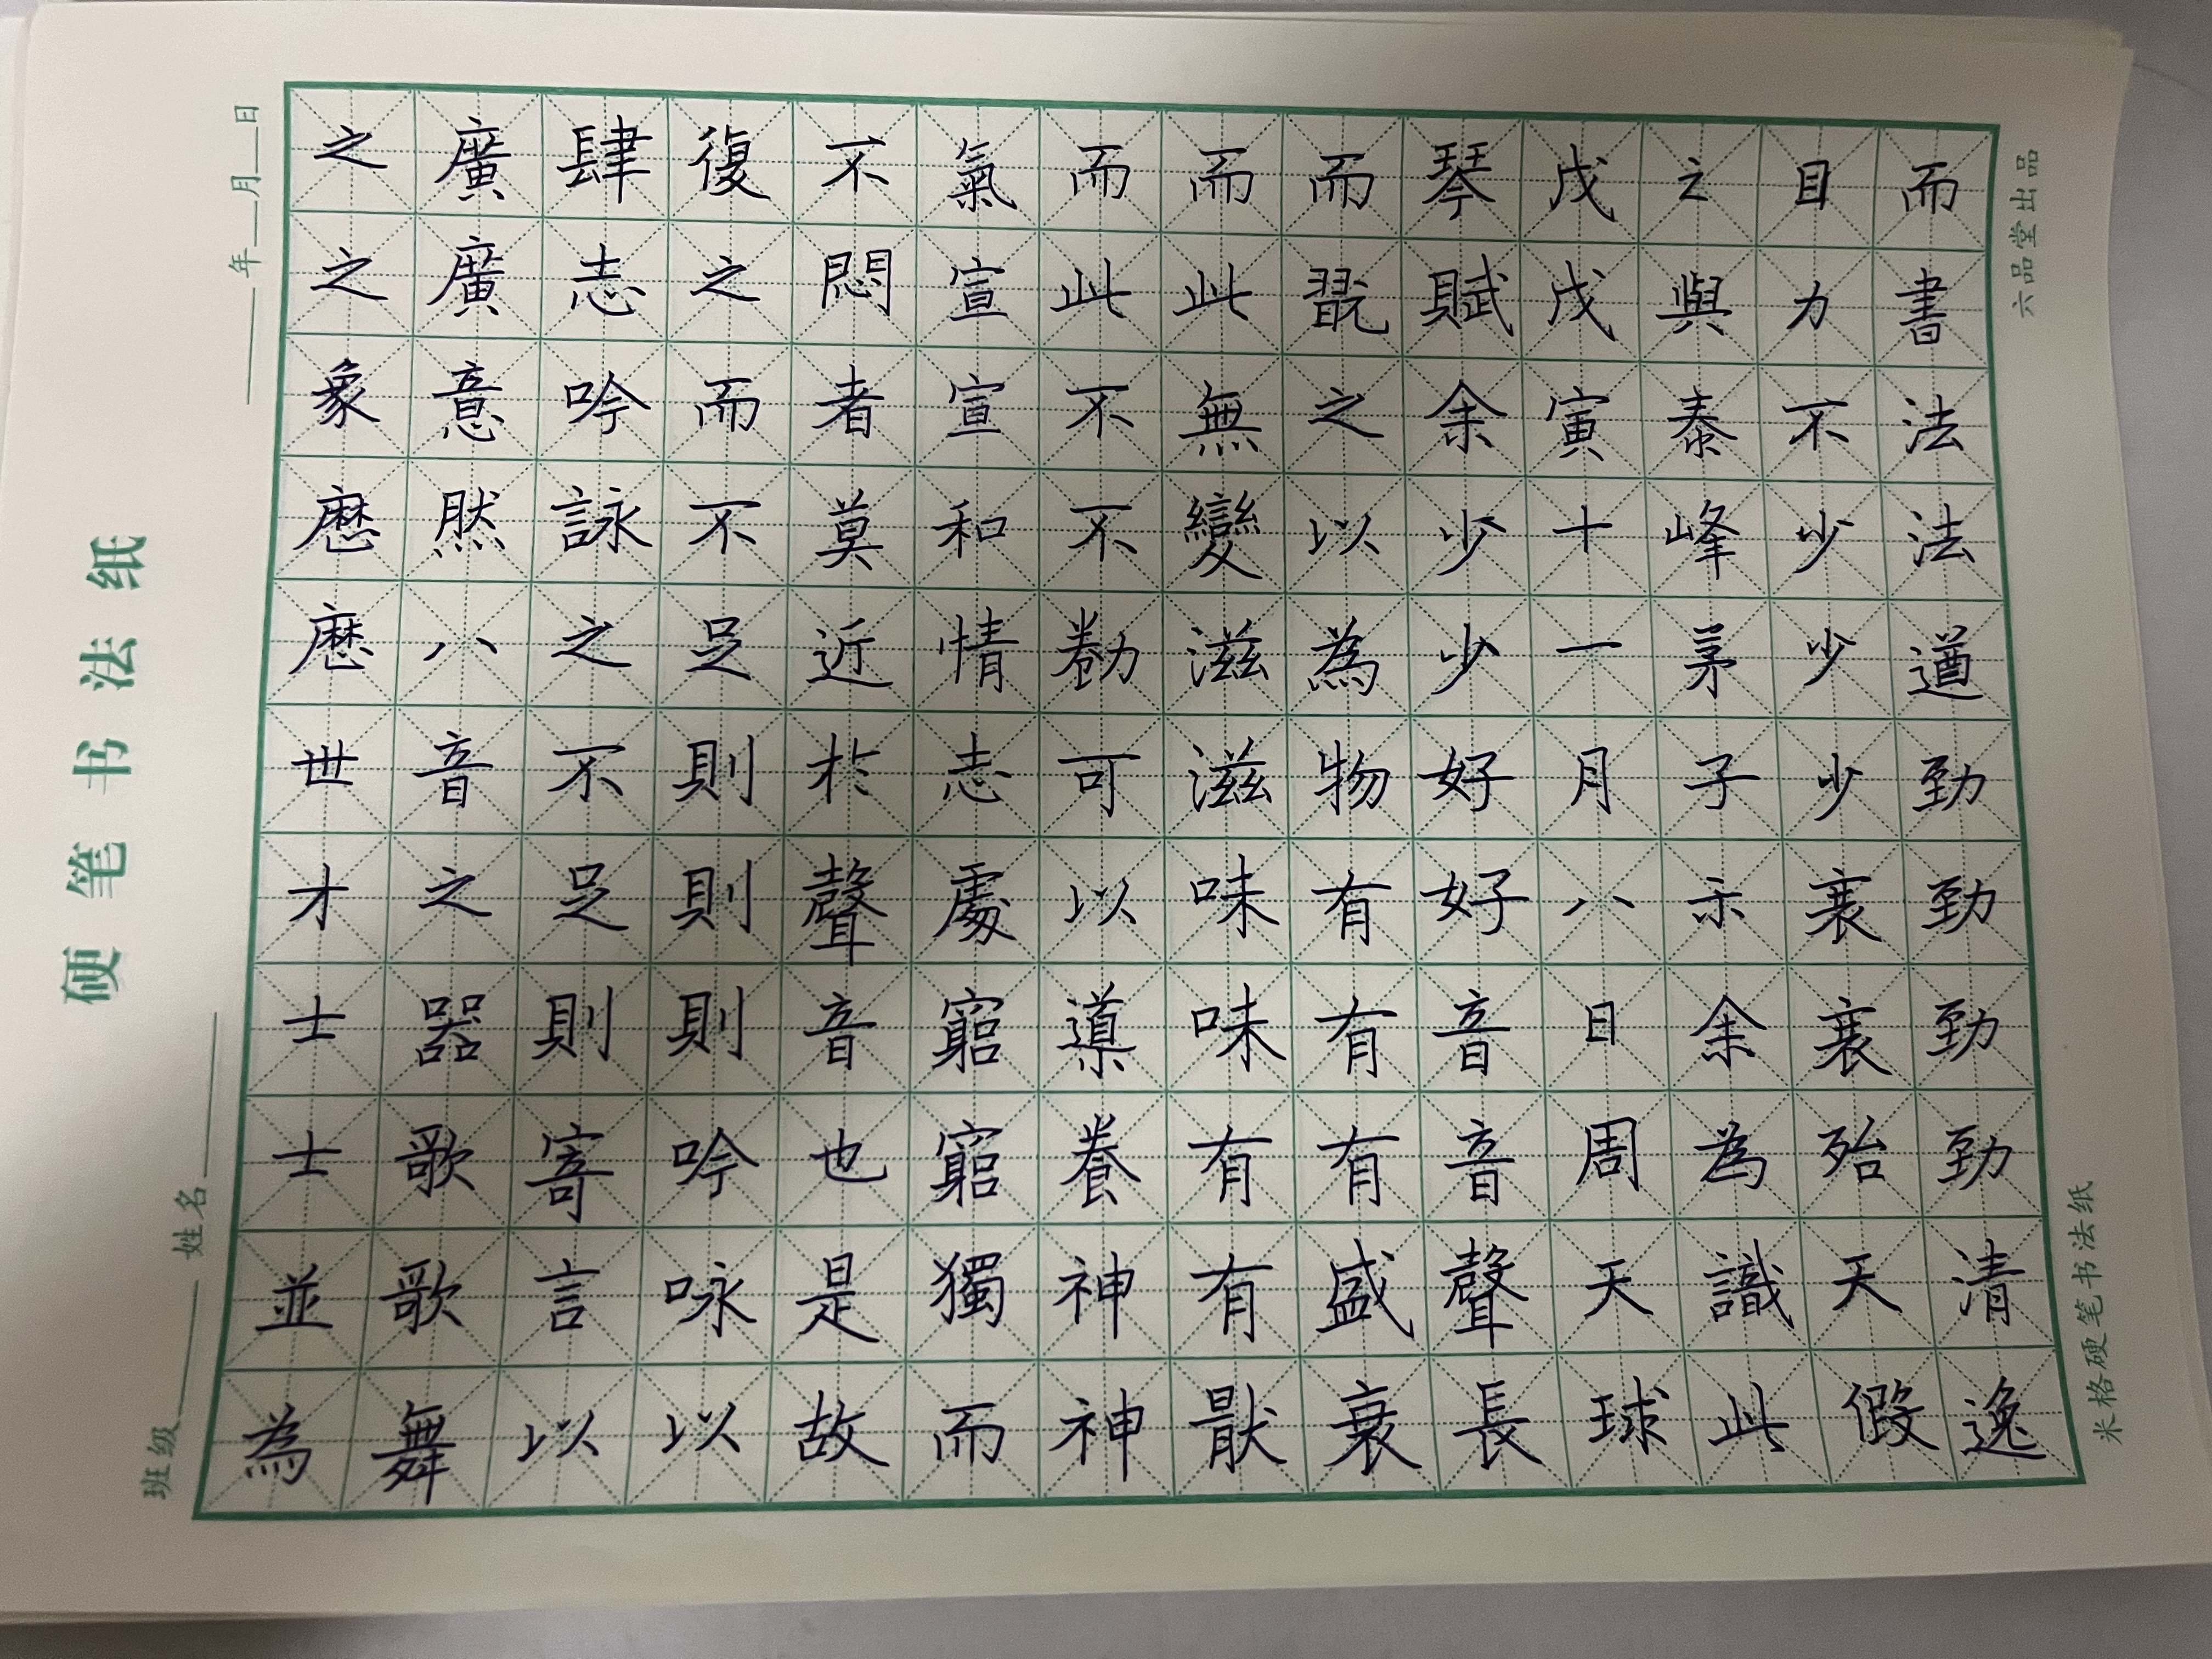 硬笔书法纸
班级 姓名
年 月 日
而書法法遒勁勁勁勁清遂
目力不少少少
此
戊戊寅十一月八日周天球
琴賦余少少好好音音聲長
而翫之以為物有有有盛衰
而此無變滋滋味味有有猒
而此不不勌可以導養神神
氣宣宣和情志處窮窮獨而
不悶者莫近於聲音也是故
復之而不足則則則吟詠以
肆志吟詠之不足則寄言以
廣廣意然八音之器歌歌舞
之之象歷歷世才士士並為
米格硬笔书法纸
六品堂出品